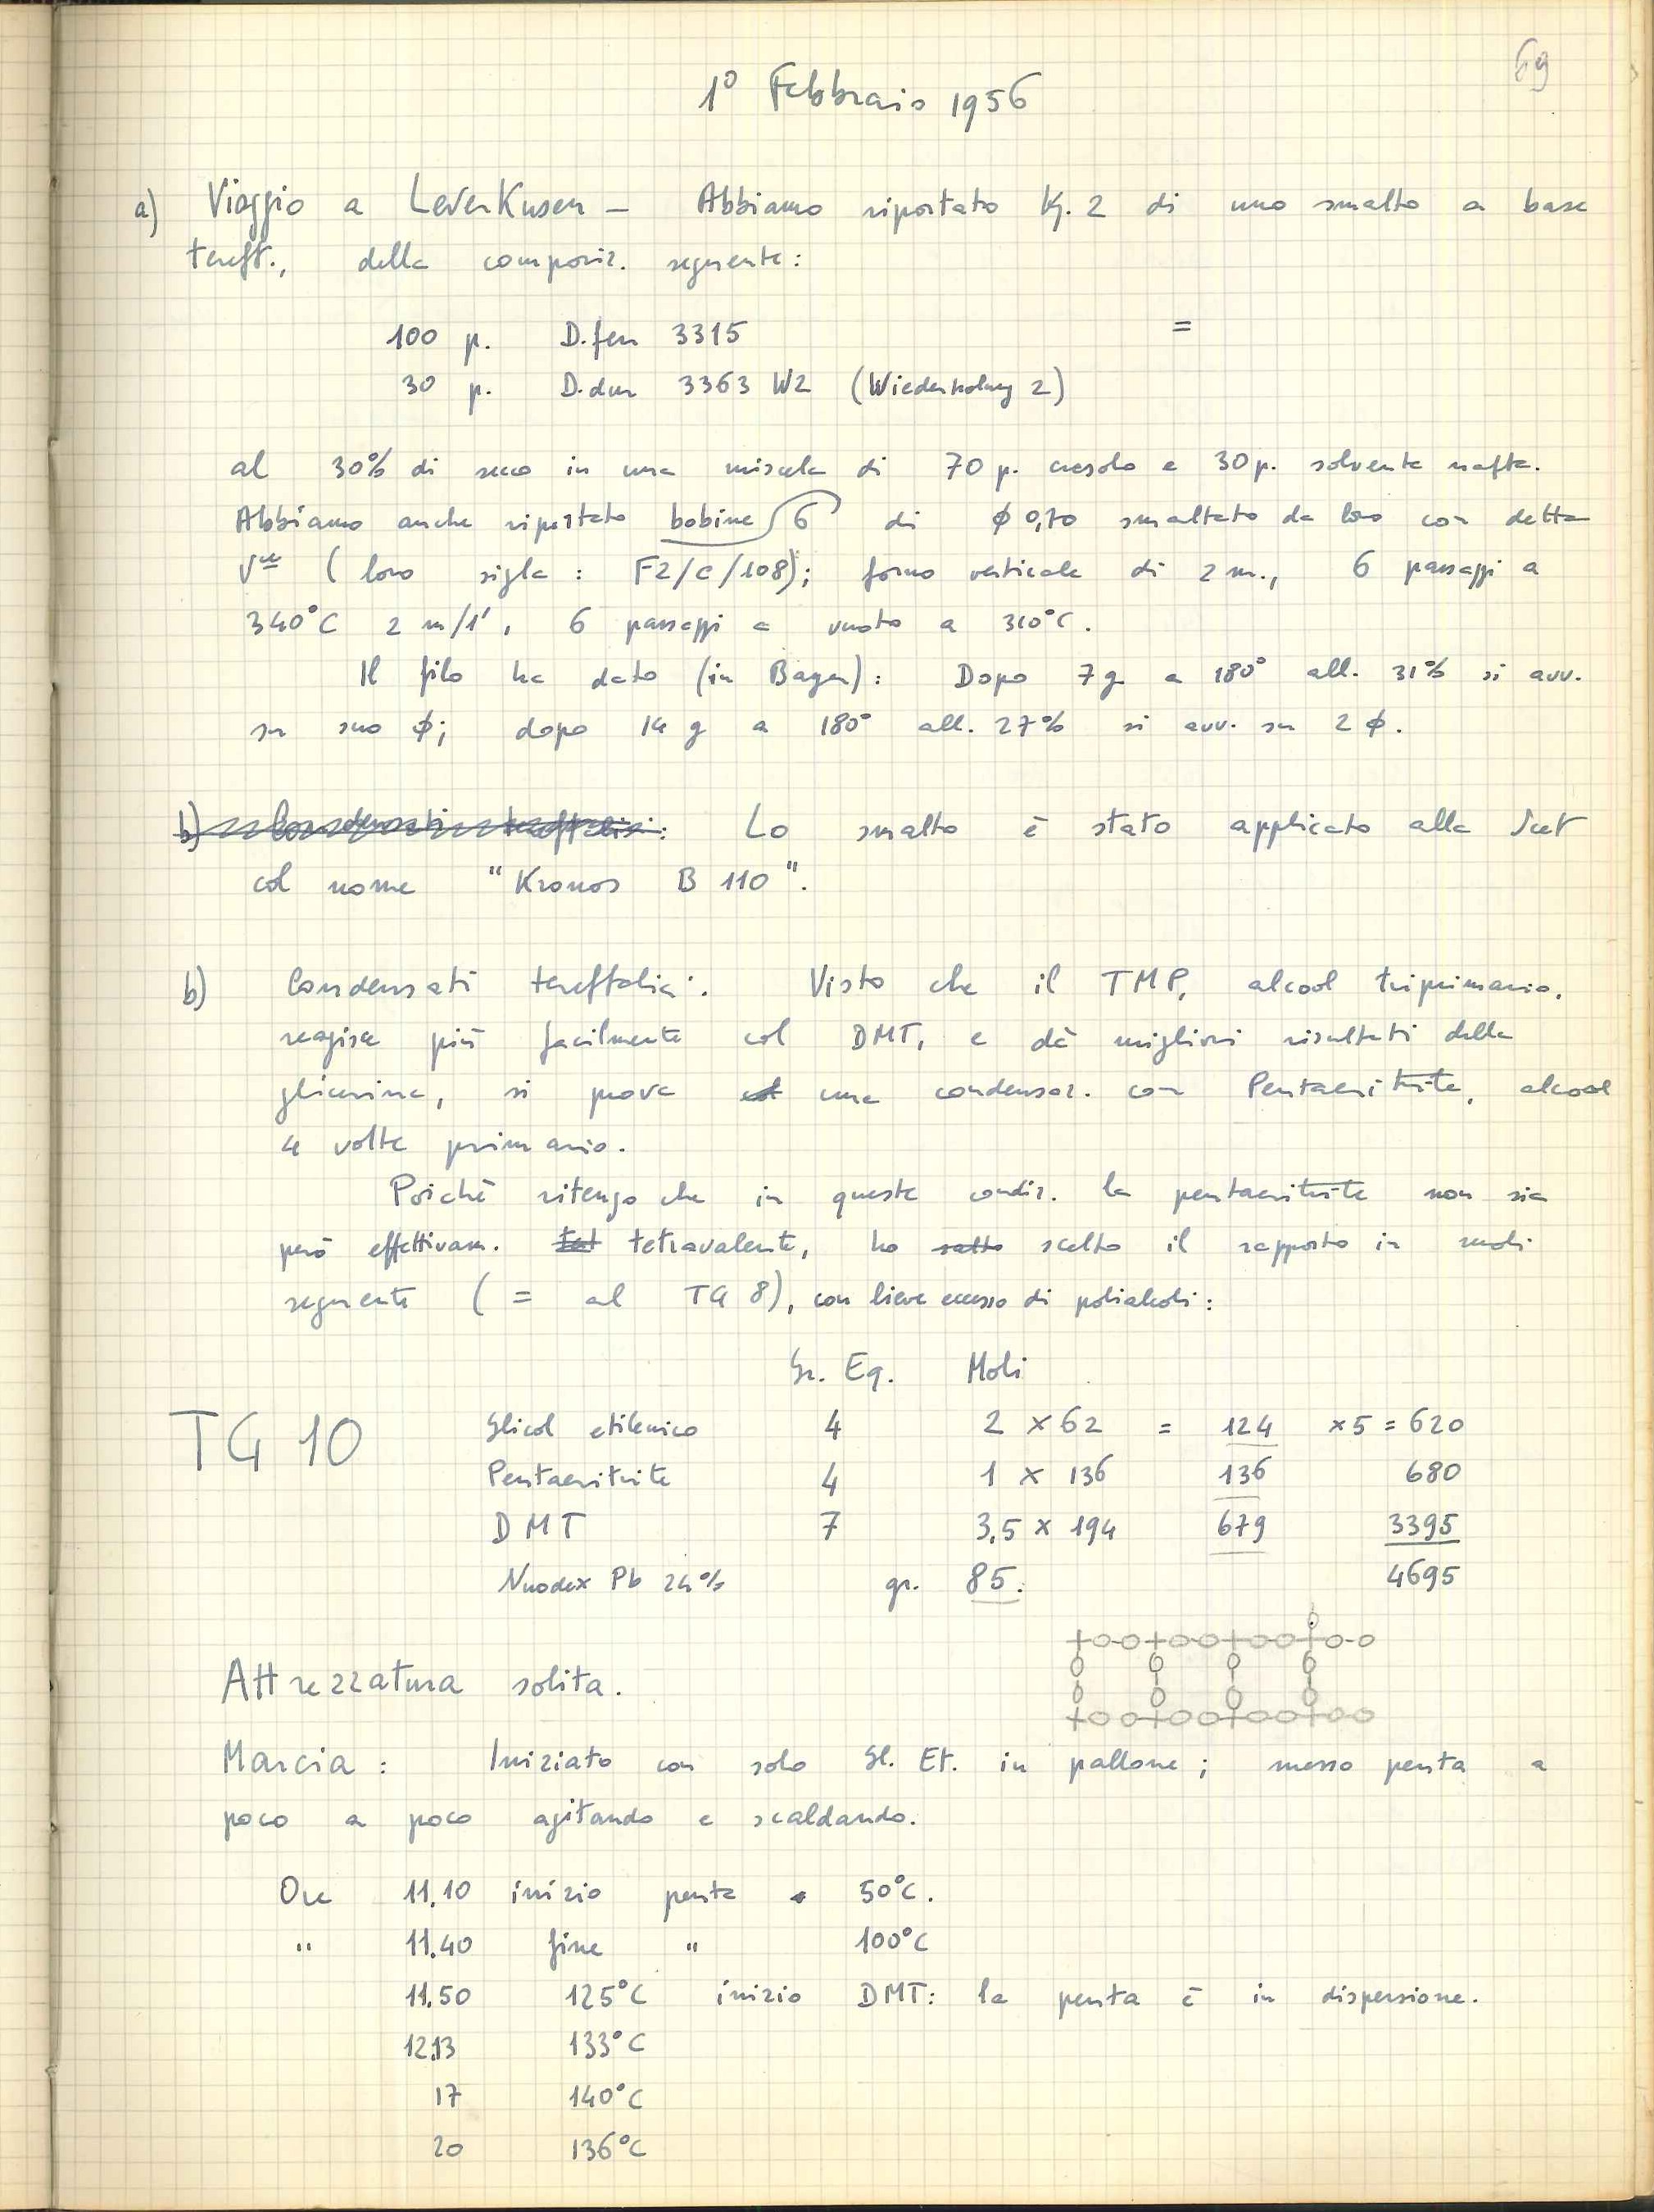 69
1° Febbraio 1956
a) Viaggio a LeverKusen – Abbiamo riportato Kg. 2 di uno smalto a base
tereft., della composiz. seguente:
100 p. D.fen 3315 =
30 p. D.dur 3363 W2 (Wiederholung 2)
al 30% di secco in una miscela di 70 p. cresolo e 30 p. solvente nafta.
Abbiamo anche riportato bobine 6 di ϕ 0,70 smaltato da loro con detta
V^ce (loro sigla: F2/C/108); forno verticale di 2 m., 6 passaggi a
340°C 2 m/1', 6 passaggi a vuoto a 310°C.
Il filo ha dato (in Bayer): Dopo 7 g a 180° all. 31% si avv.
su suo ϕ; dopo 14 g a 180° all. 27% si avv. su 2 ϕ.
b) Condensati tereftalici: Lo smalto è stato applicato alla Scet
col nome "Kronos B 110".
b) Condensati tereftalici. Visto che il TMP, alcool triprimario,
reagisce più facilmente col DMT, e dà migliori risultati della
glicerina, si prova una condensaz. con Pentaeritrite, alcool
4 volte primario.
Poiché ritengo che in queste condiz. la pentaeritrite non sia
però effettivam. tet tetravalente, ho scelto il rapporto in moli
seguente (= al TG 8), con lieve eccesso di polialcoli:
Gr. Eq. Moli
TG 10 Glicol etilenico 4 2 × 62 = 124 ×5 = 620
Pentaeritrite 4 1 × 136 136 680
DMT 7 3,5 × 194 679 3395
Nuodex Pb 24% gr. 85. 4695
Attrezzatura solita.
Marcia: Iniziato con solo Gl. Et. in pallone; messo penta a
poco a poco agitando e scaldando.
Ore 11.10 inizio penta a 50°C.
" 11.40 fine " 100°C
11.50 125°C inizio DMT: la penta è in dispersione.
12.13 133°C
17 140°C
20 136°C